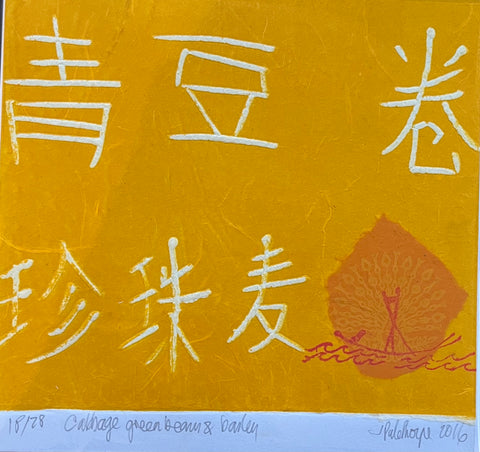 青豆 卷
珍珠麦
18/28 Cabbage green beans & barley JPalethorpe 2016